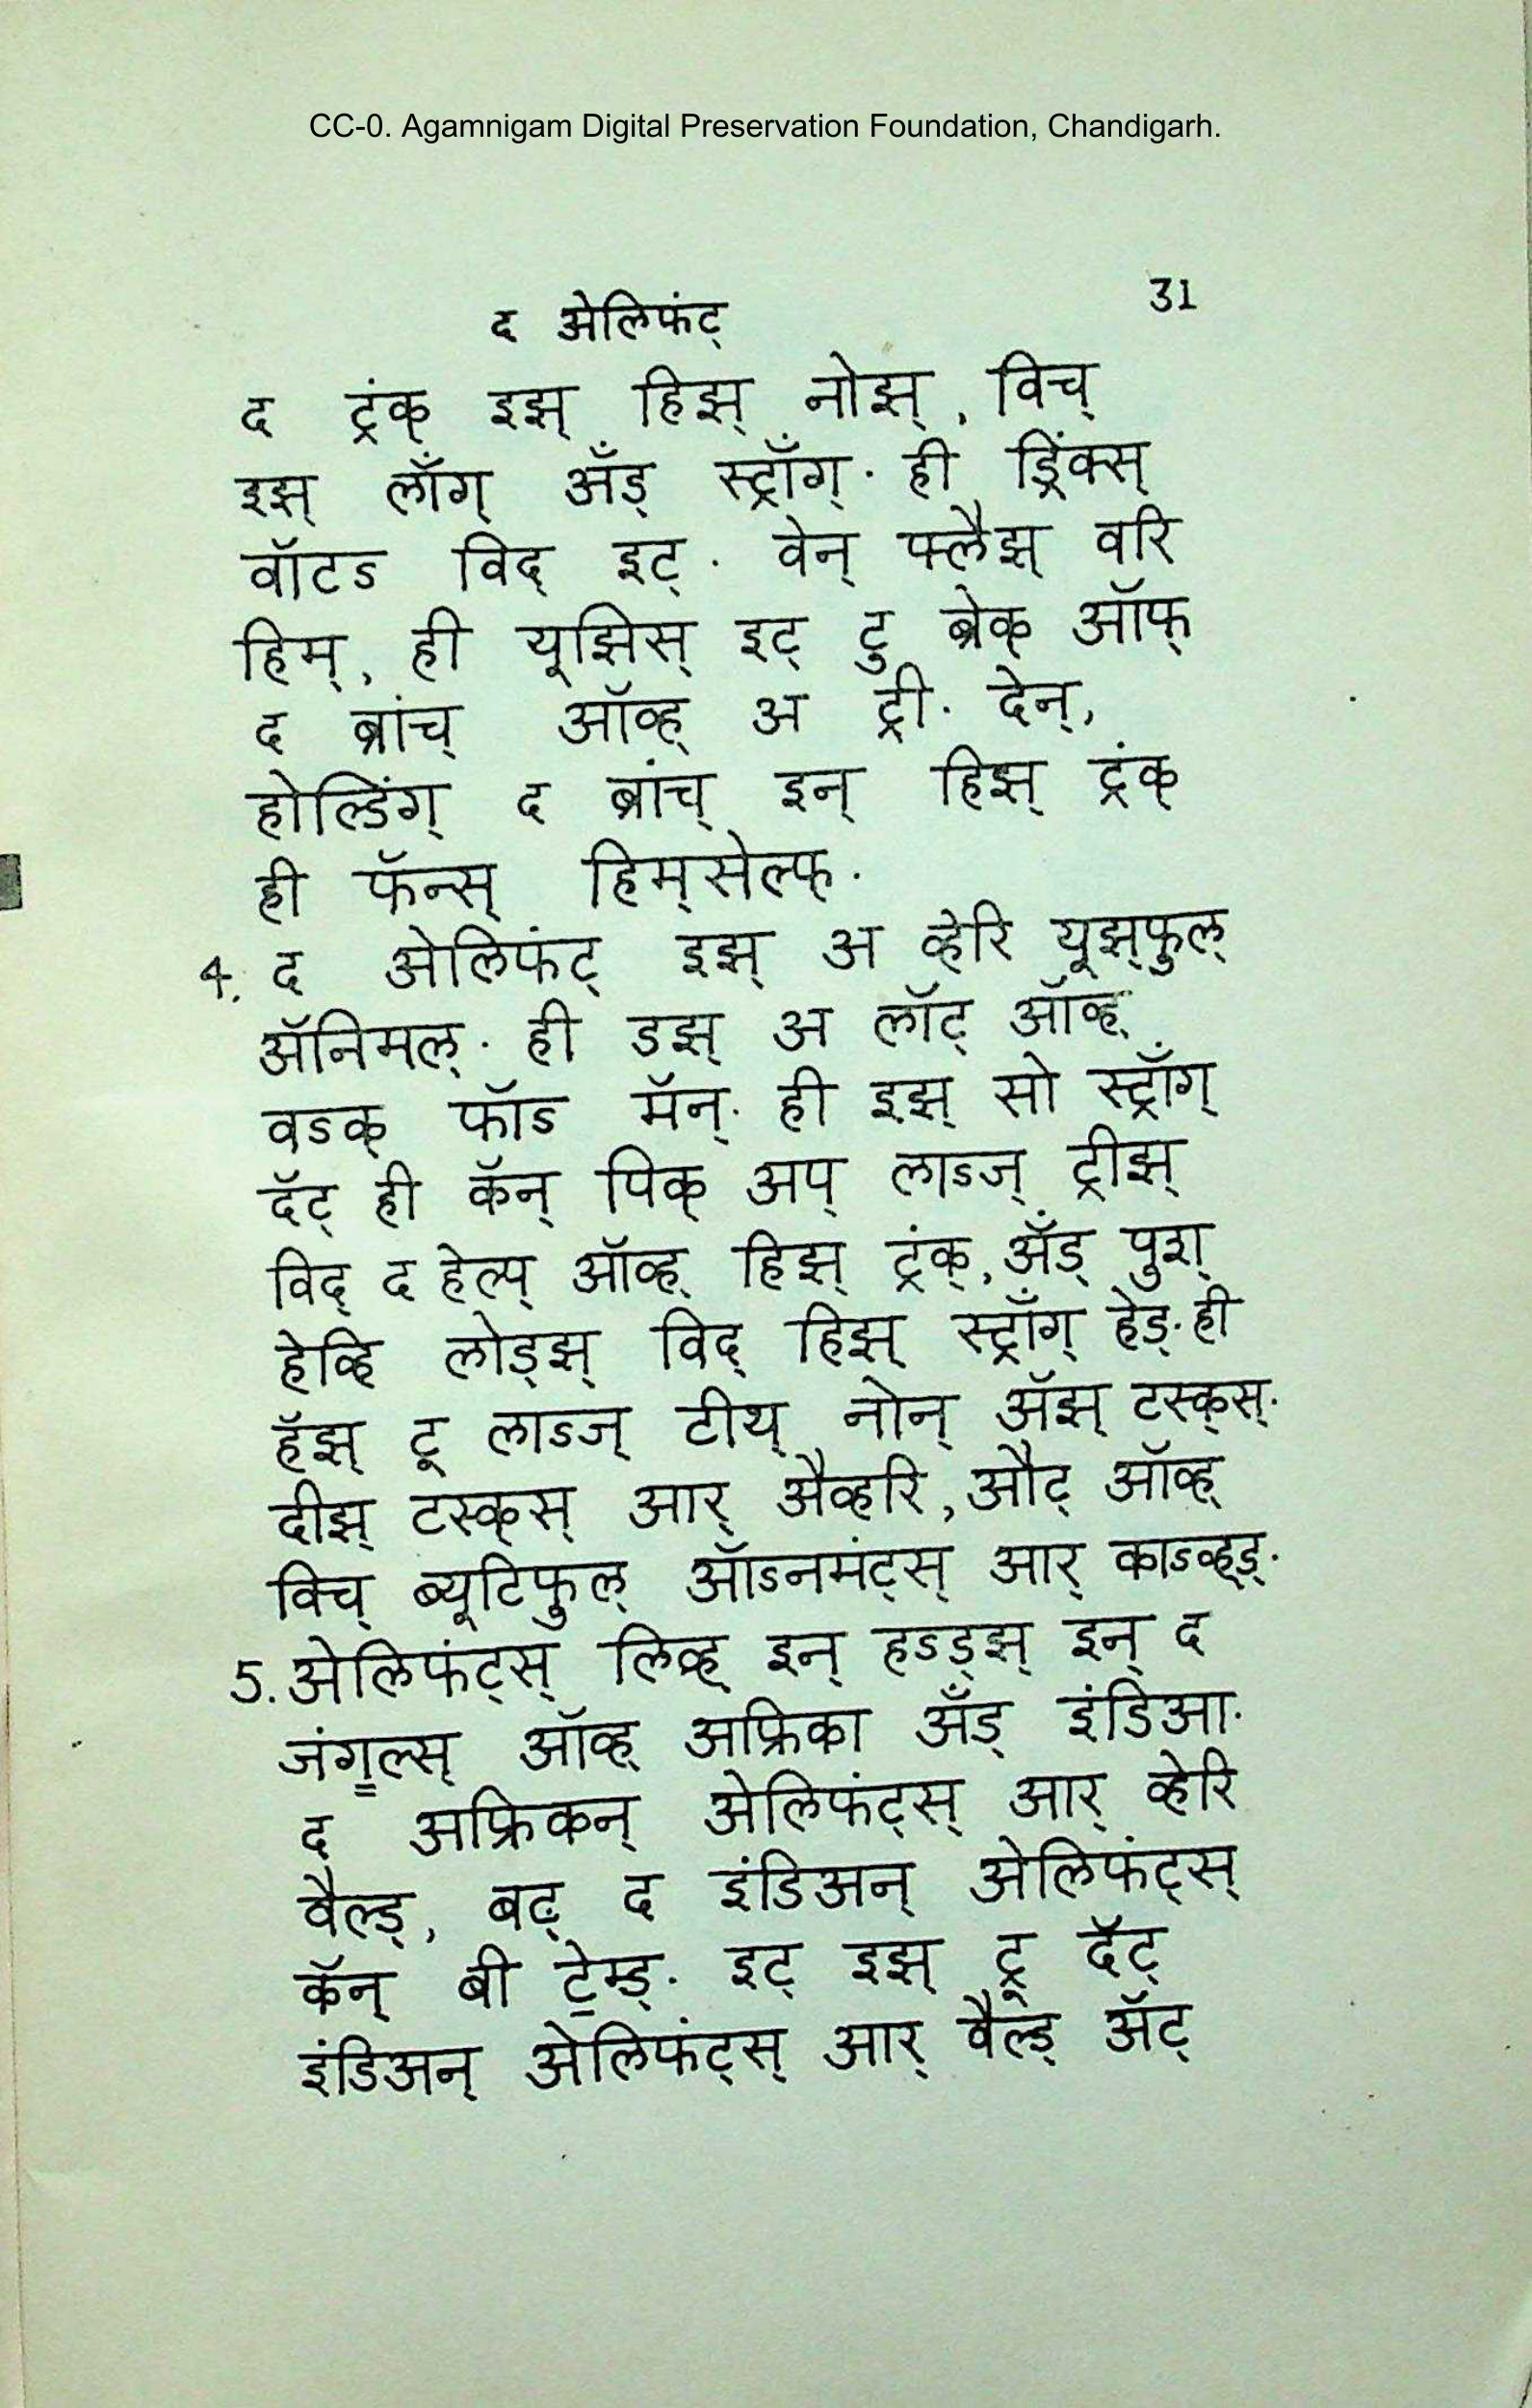 CC-0. Agamnigam Digital Preservation Foundation, Chandigarh.
द अेलिफंट् 31
द ट्रंक् इझ् हिझ् नोझ्, विच्
इझ् लाँग् अँड् स्ट्राँग्. ही ड्रिंक्स्
वॉटऽ विद् इट्. वेन् फ्लैझ् वरि
हिम्, ही यूझिस् इट् टु ब्रेक् ऑफ्
द ब्रांच् ऑव्ह् अ ट्री. देन्,
होल्डिंग् द ब्रांच् इन् हिझ् ट्रंक्
ही फॅन्स् हिम्सेल्फ्.
4. द अेलिफंट् इझ् अ व्हेरि यूझ्फुल्
अॅनिमल्. ही डझ् अ लॉट् ऑव्ह्
वऽक् फॉऽ मॅन्. ही इझ् सो स्ट्राँग्
दॅट् ही कॅन् पिक् अप् लाऽज् ट्रीझ्
विद् द हेल्प् ऑव्ह् हिझ् ट्रंक्, अँड् पुश्
हेव्हि लोड्झ् विद् हिझ् स्ट्राँग् हेड्. ही
हॅझ् टू लाऽज् टीथ् नोन् अॅझ् टस्क्स्.
दीझ् टस्क्स् आर् अैव्हरि, औट् ऑव्ह्
विच् ब्यूटिफुल् ऑऽनमंट्स् आर् काऽव्ह्ड्.
5. अेलिफंट्स् लिव्ह् इन् हऽड्झ् इन् द
जंगॢल्स् ऑव्ह् अफ्रिका अँड् इंडिआ.
द अफ्रिकन् अेलिफंट्स् आर् व्हेरि
वैल्ड्, बट् द इंडिअन् अेलिफंट्स्
कॅन् बी टे॒म्ड्. इट् इझ् ट्रू दॅट्
इंडिअन् अेलिफंट्स् आर् वैल्ड् अॅट्